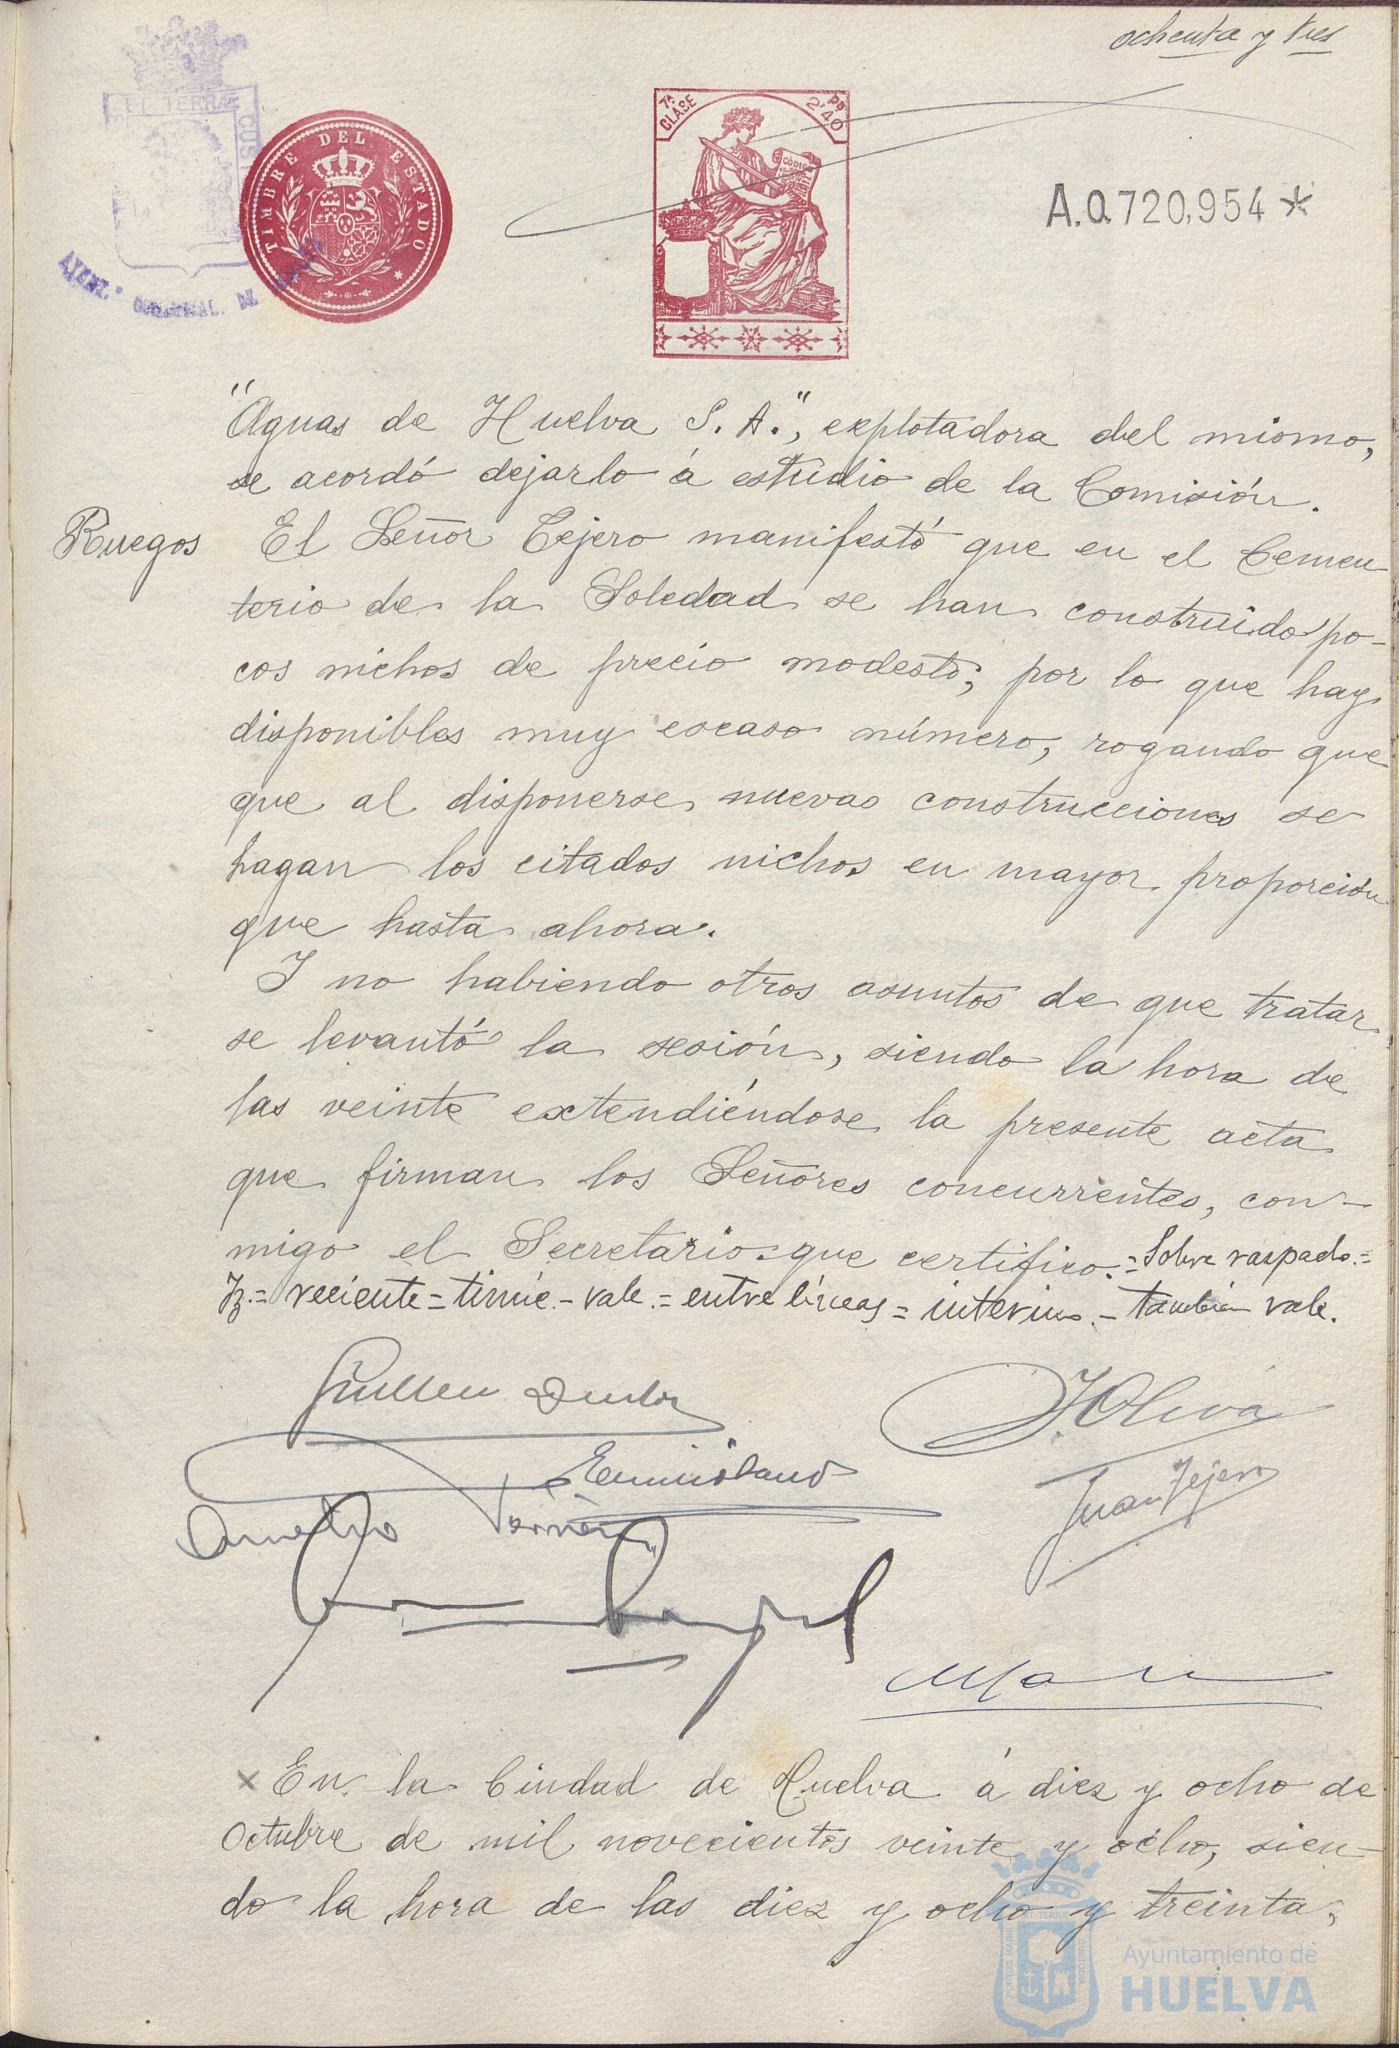 ochenta y tres
TIMBRE DEL ESTADO
7ª CLASE
2'40 Ps
CODIGO
A.0.720,954 *
AYUNT.º DE
"Aguas de Huelva S. A.", explotadora del mismo,
se acordó dejarlo á estudio de la Comisión.
Ruegos El Señor Tejero manifestó que en el Cemen-
terio de la Soledad se han construido po-
cos nichos de precio modesto, por lo que hay
disponibles muy escaso número, rogando que
que al disponerse nuevas construcciones se
hagan los citados nichos en mayor proporción
que hasta ahora.
Y no habiendo otros asuntos de que tratar
se levantó la sesión, siendo la hora de
las veinte extendiéndose la presente acta
que firman los Señores concurrentes, con-
migo el Secretario que certifico.=Sobre raspado.=
=reciente=tinúe.-vale.=entre líneas=interino.-también vale.
J. Oliva
Juan Tejero
× En la Ciudad de Huelva á diez y ocho de
Octubre de mil novecientos veinte y ocho, sien-
do la hora de las diez y ocho y treinta,
Ayuntamiento de
HUELVA